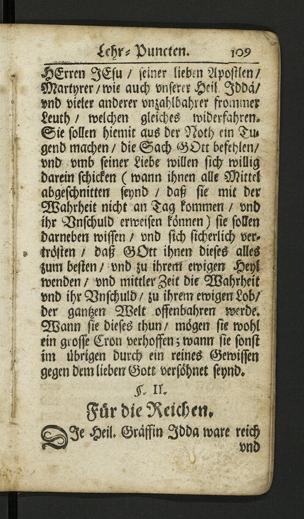 Lehr-Puncten. 109
HErren JEsu / seiner lieben Apostlen /
Martyrer / wie auch vnserer Heil. Iddá /
vnd vieler anderer vnzahlbahrer frommer
Leuth / welchen gleiches widerfahren.
Sie sollen hiemit aus der Noth ein Tu-
gend machen / die Sach GOtt befehlen /
vnd vmb seiner Liebe willen sich willig
darein schicken ( wann ihnen alle Mittel
abgeschnitten seynd / daß sie mit der
Wahrheit nicht an Tag kommen / vnd
ihr Vnschuld erweisen können ) sie sollen
darneben wissen / vnd sich sicherlich ver-
trösten / daß GOtt ihnen dieses alles
zum besten / vnd zu ihrem ewigen Heyl
wenden / vnd mittler Zeit die Wahrheit
vnd ihr Vnschuld / zu ihrem ewigen Lob /
der gantzen Welt offenbahren werde.
Wann sie dieses thun / mögen sie wohl
ein grosse Cron verhoffen; wann sie sonst
im übrigen durch ein reines Gewissen
gegen dem lieben Gott versöhnet seynd.
§. II.
Für die Reichen.
DIe Heil. Gräffin Idda ware reich
vnd